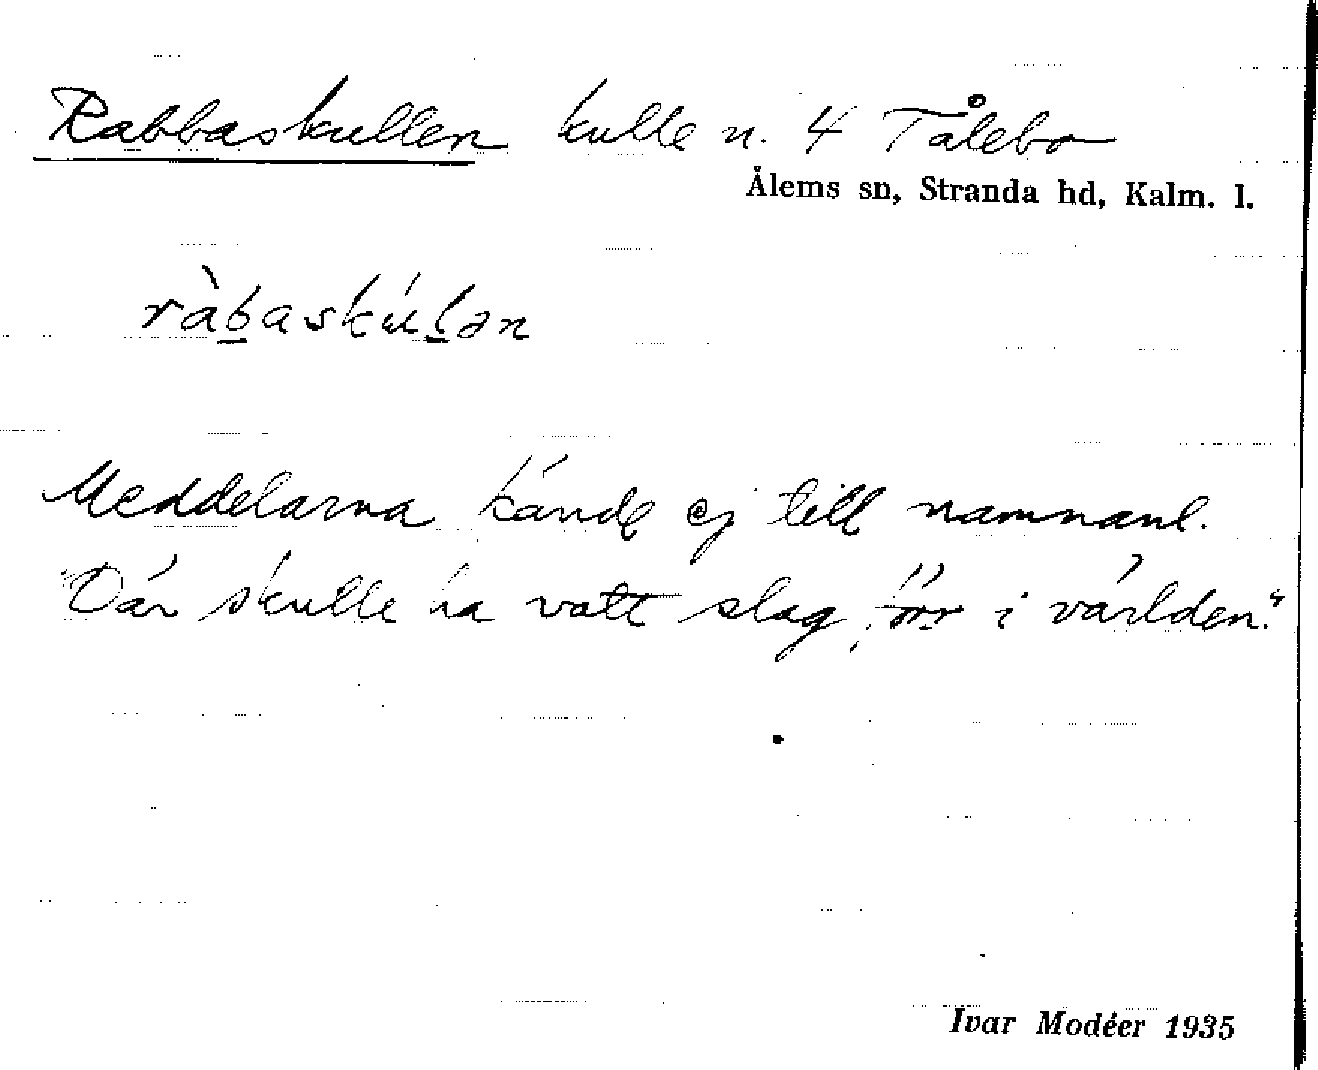 Rabbaskullen kulle n. 4 Tålebo
Ålems sn, Stranda hd, Kalm. l.
ràb̲askúl̲ən
Meddelarna kände ej till namnanl.
"Där skulle ha vatt slag, förr i världen."
Ivar Modéer 1935